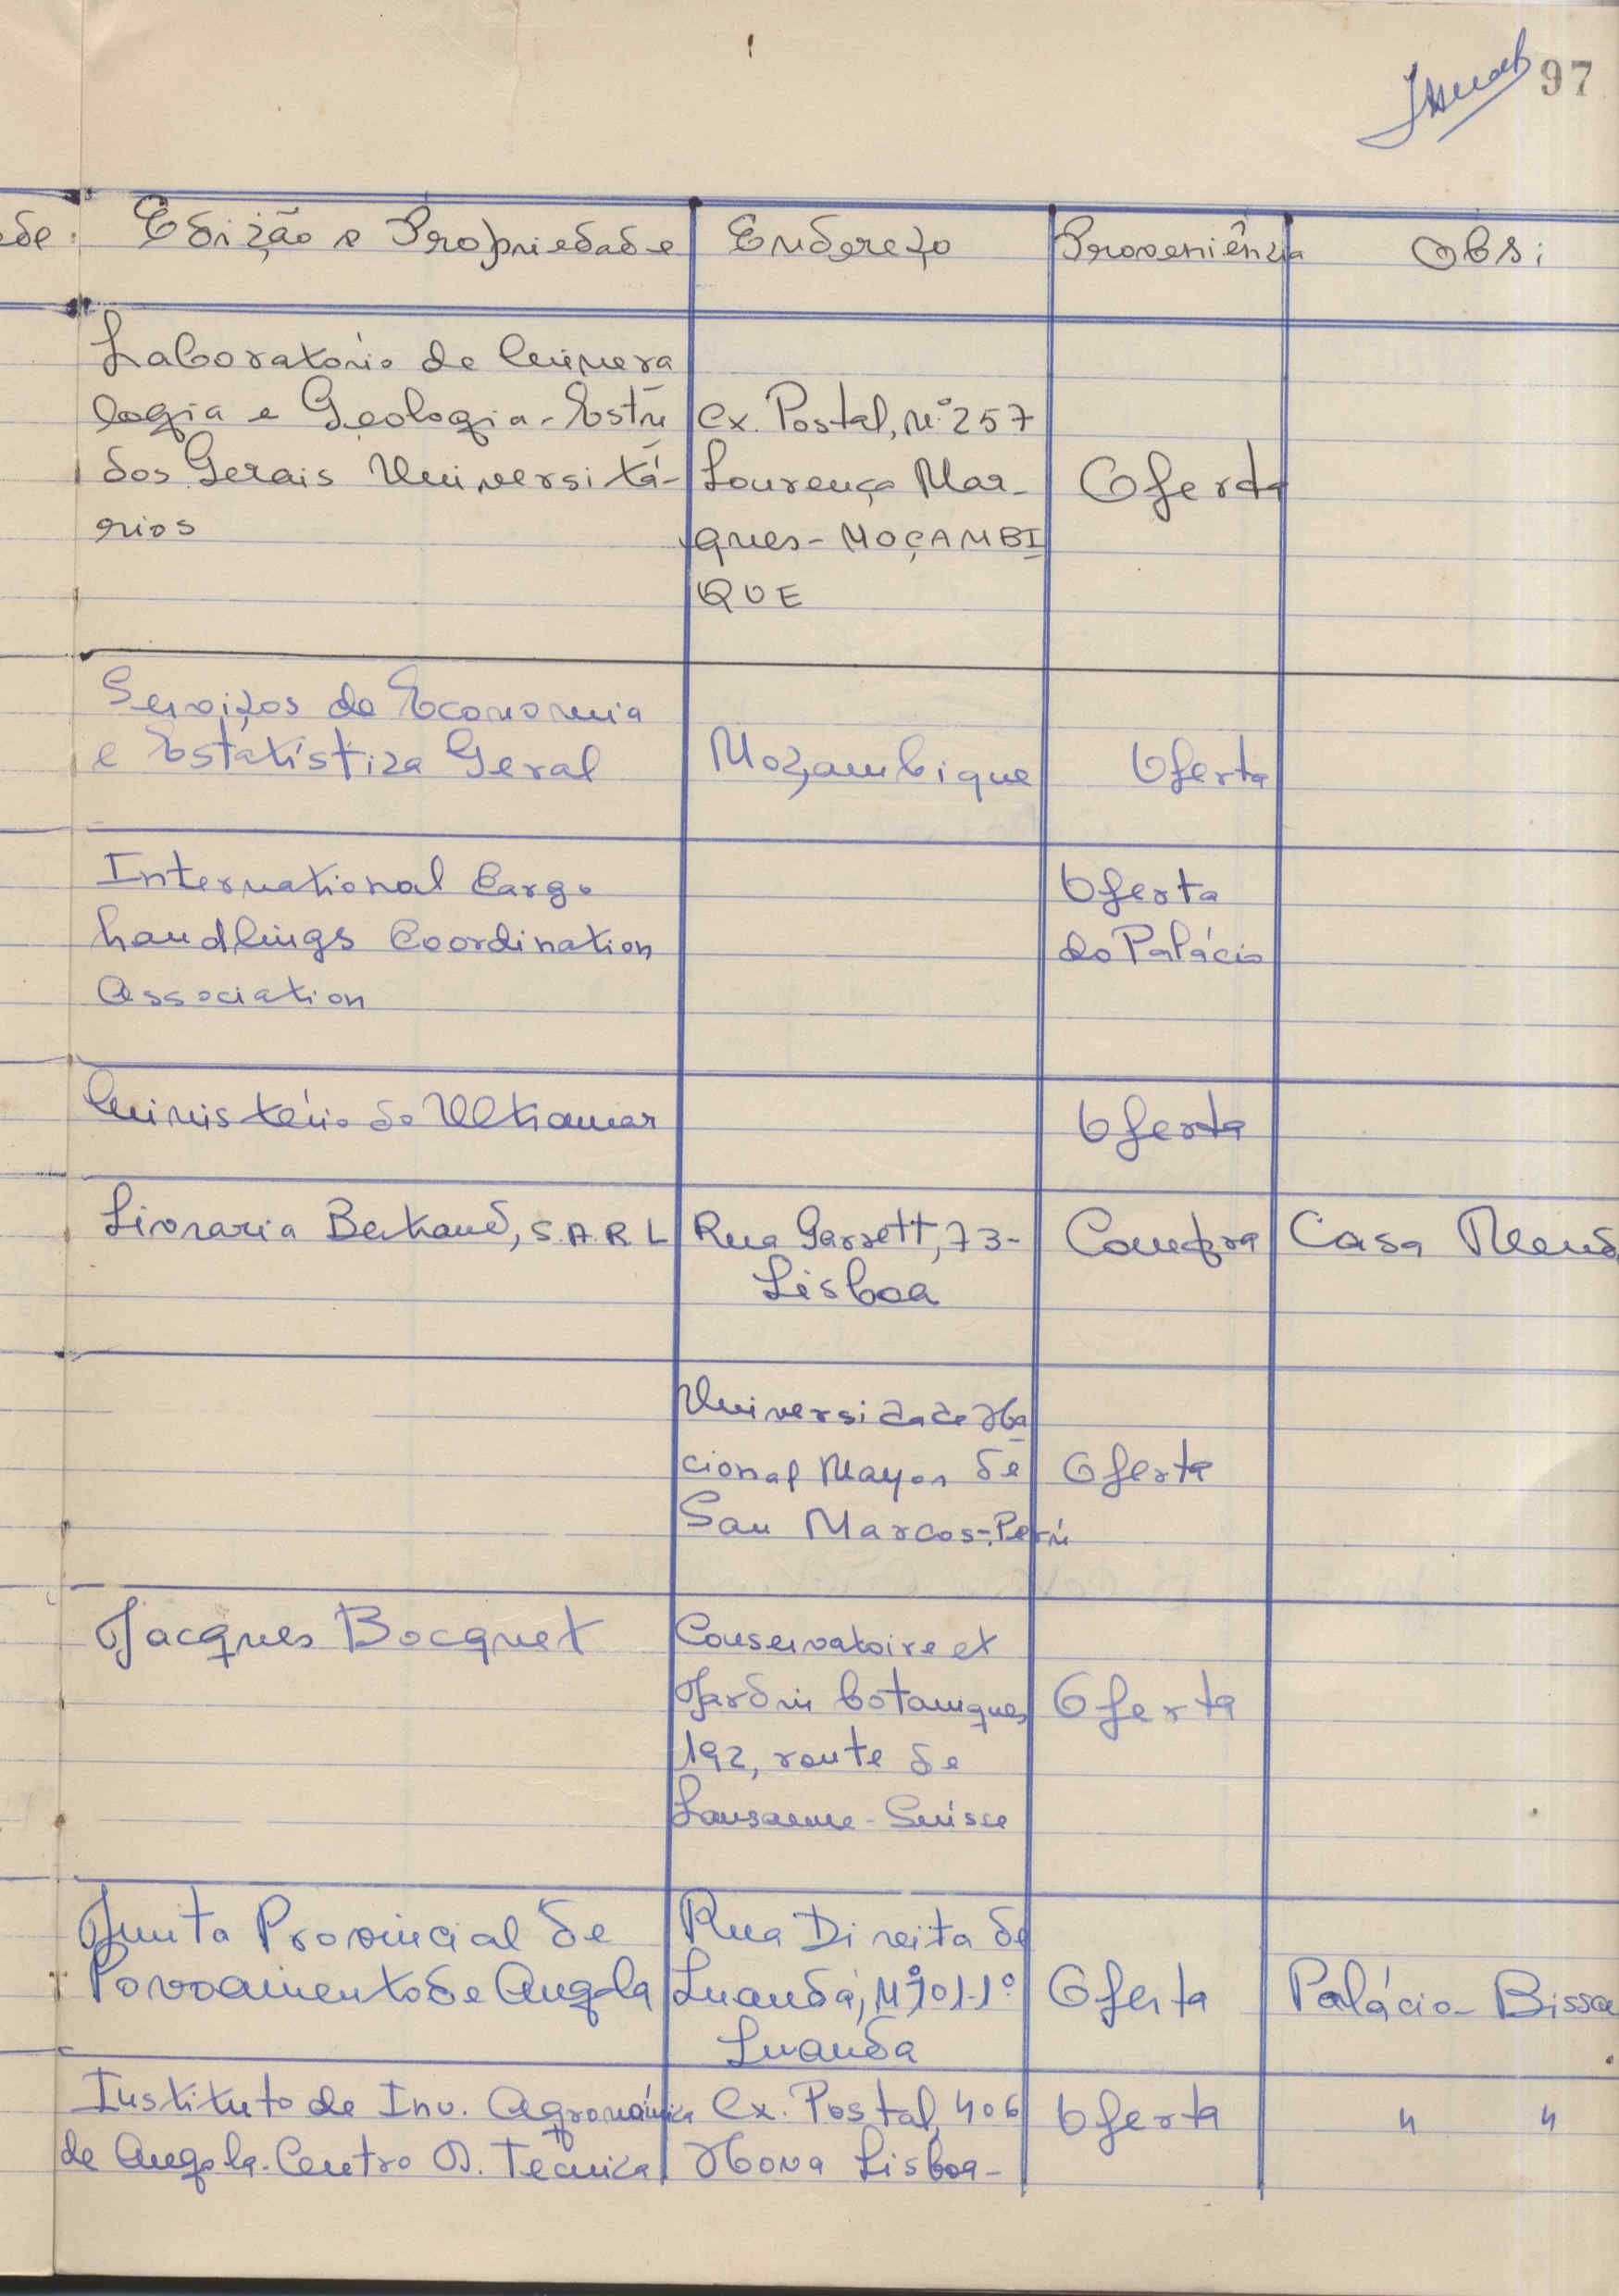 97
de. Edição e Propriedade Endereço Proveniência Obs:
Laboratório de Minera
logia e Geologia - Estu
dos Gerais Universitá-
rios
Cx. Postal, N.º 257
Lourenço Mar-
ques - MOÇAMBI
QUE
Oferta
Serviços de Economia
e Estatística Geral
Moçambique
Oferta
International Cargo
handlings Coordination
Association
Oferta
do Palácio
Ministério do Ultramar
Oferta
Livraria Bertrand, S.A.R.L
Rua Garrett, 73-
Lisboa
Compra
Casa Mend
Universidade Na
cional Mayor de
San Marcos - Perú
Oferta
Jacques Bocquet
Conservatoire et
Jardin botaniques
192, route de
Lausanne - Suisse
Oferta
Junta Provincial de
Povoamento de Angola
Rua Direita de
Luanda, Nº 101-1º
Luanda
Oferta
Palácio - Bissa
Instituto de Inv. Agronómica
de Angola - Centro D. Tecnica
Cx. Postal, 406
Nova Lisboa -
Oferta
" "